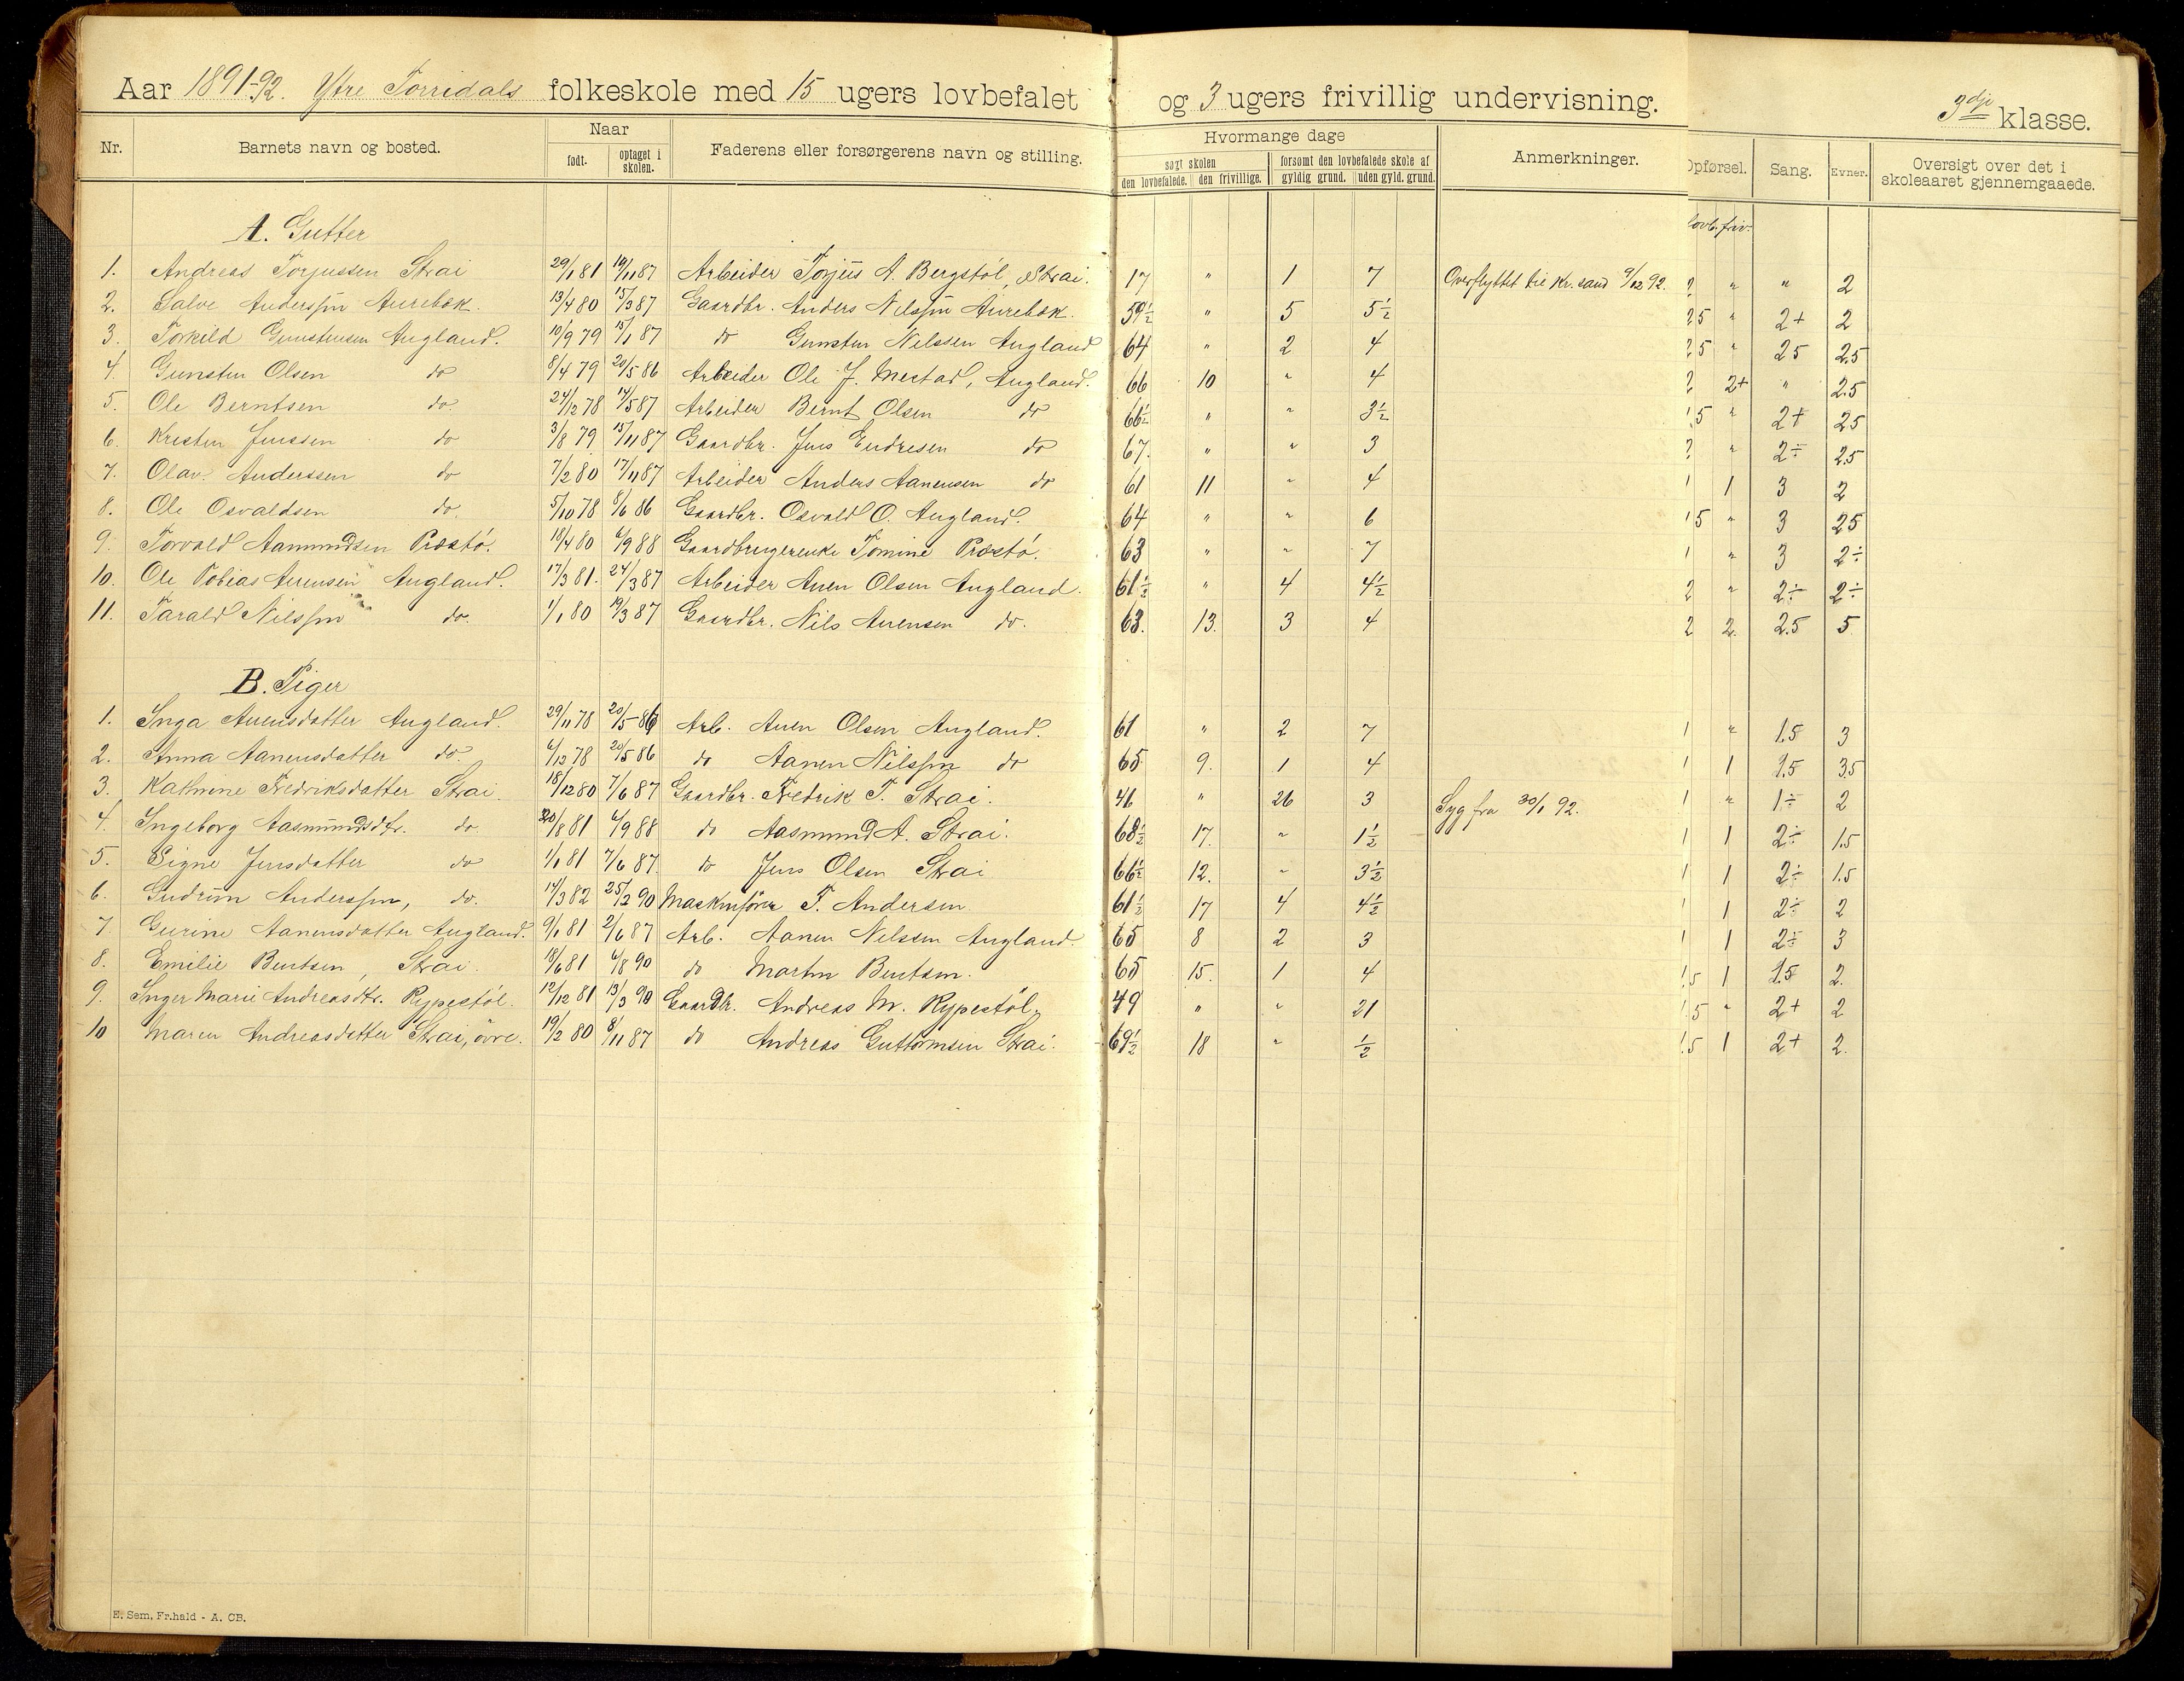 Aar 1891-92. Ytre Torridals folkeskole med 15 ugers lovbefalet og 3 ugers frivillig undervisning. 3dje klasse.
Nr. Barnets navn og bosted. Naar født. optaget i skolen. Faderens eller forsørgerens navn og stilling. Hvormange dage søgt skolen den lovbefalede. den frivillige. forsømt den lovbefalede skole af gyldig grund. uden gyld. grund. Anmerkninger. Opførsel. Sang. Evner. Oversigt over det i skoleaaret gjennemgaaede.
lovb. friv.
A. Gutter
1. Andreas Torjussen Strai 29/1 81 19/11 87 Arbeider Torjus A. Bergstøl, Strai. 17 " 1 7 Overflyttet til Kr.sand 9/12 92. 2 " " 2
2. Salve Anderssøn Aurebæk. 13/4 80 15/3 87 Gaardbr. Anders Nilssøn Aurebæk. 59½ " 5 5½ 25 " 2+ 2
3. Torkild Gunstensen Augland. 10/9 79 15/1 87 do Gunsten Nilssen Augland 64 " 2 4 25 " 25 2.5
4. Gunsten Olsen do 8/4 79 20/5 86 Arbeider Ole J. Mestad, Augland. 66 10 " 4 2 2+ " 2.5
5. Ole Berntsen do. 24/12 78 14/5 87 Arbeider Bernt Olsen do 66½ " " 3½ 1.5 " 2+ 25
6. Kristen Jenssen do 3/8 79 15/11 87 Gaardbr. Jens Endresen do 67. " " 3 2 " 2÷ 2.5
7. Olav Anderssen do 7/2 80 17/11 87 Arbeider Anders Aanensen do 61 11 " 4 1 1 3 2
8. Ole Osvaldsen do. 5/10 78 8/6 86 Gaardbr. Osvald O. Augland. 64 " " 6 15 " 3 25
9. Torvald Aamundsen Præstø. 18/4 80 6/9 88 Gaardbrugerenke Tomine Præstø. 63 " " 7 1 " 3 2÷
10. Ole Tobias Auensen Augland. 17/3 81. 24/3 87 Arbeider Auen Olsen Augland. 61½ " 4 4½ 2 " 2÷ 2÷
11. Tarald Nilssøn do. 1/1 80 19/3 87 Gaardbr. Nils Auensen do. 63. 13. 3 4 2 2. 2.5 5
B. Piger
1. Inga Auensdatter Augland. 29/11 78 20/5 86 Arb. Auen Olsen Augland. 61 " 2 7 1 " 1.5 3
2. Anna Aanensdatter do. 6/12 78 20/5 86 do Aanen Nilssøn do 65 9. 1 4 1 1 1.5 3.5
3. Kathrine Fredriksdatter Strai. 18/12 80 7/6 87 Gaardbr. Fredrik T. Strai. 46 " 26 3 Syg fra 30/1 92. 1 " 1÷ 2
4. Ingeborg Aasmundsdtr. do 20/8 81 6/9 88 do Aasmund A. Strai. 68½ 17. " 1½ 1 1 2÷ 1.5
5. Signe Jensdatter do 1/1 81 7/6 87. do Jens Olsen Strai 66½ 12. " 3½ 1 1 2÷ 1.5
6. Gudrun Anderssøn, do. 14/3 82 25/2 90 Maskinfører T. Andersen 61½ 17 4 4½ 1 1 2÷ 2
7. Gurine Aanensdatter Augland. 9/1 81 2/6 87 Arb. Aanen Nilssen Augland. 65 8 2 3 1 1 2÷ 3
8. Emilie Bentsen, Strai. 18/6 81 6/8 90 do Martin Bentsen. 65 15. 1 4 1.5 1 1.5 2.
9. Inger Marie Andreasdtr. Rypestøl. 12/12 81 13/3 90 Gaardbr. Andreas M. Rypestøl. 49 " " 21 1.5 " 2+ 2
10 Maren Andreasdatter Strai, øvre. 19/2 80 8/11 87 do Andreas Guttormsen Strai. 69½ 18 " ½ 1.5 1 2+ 2.
E. Sem, Fr.hald - A. CB.